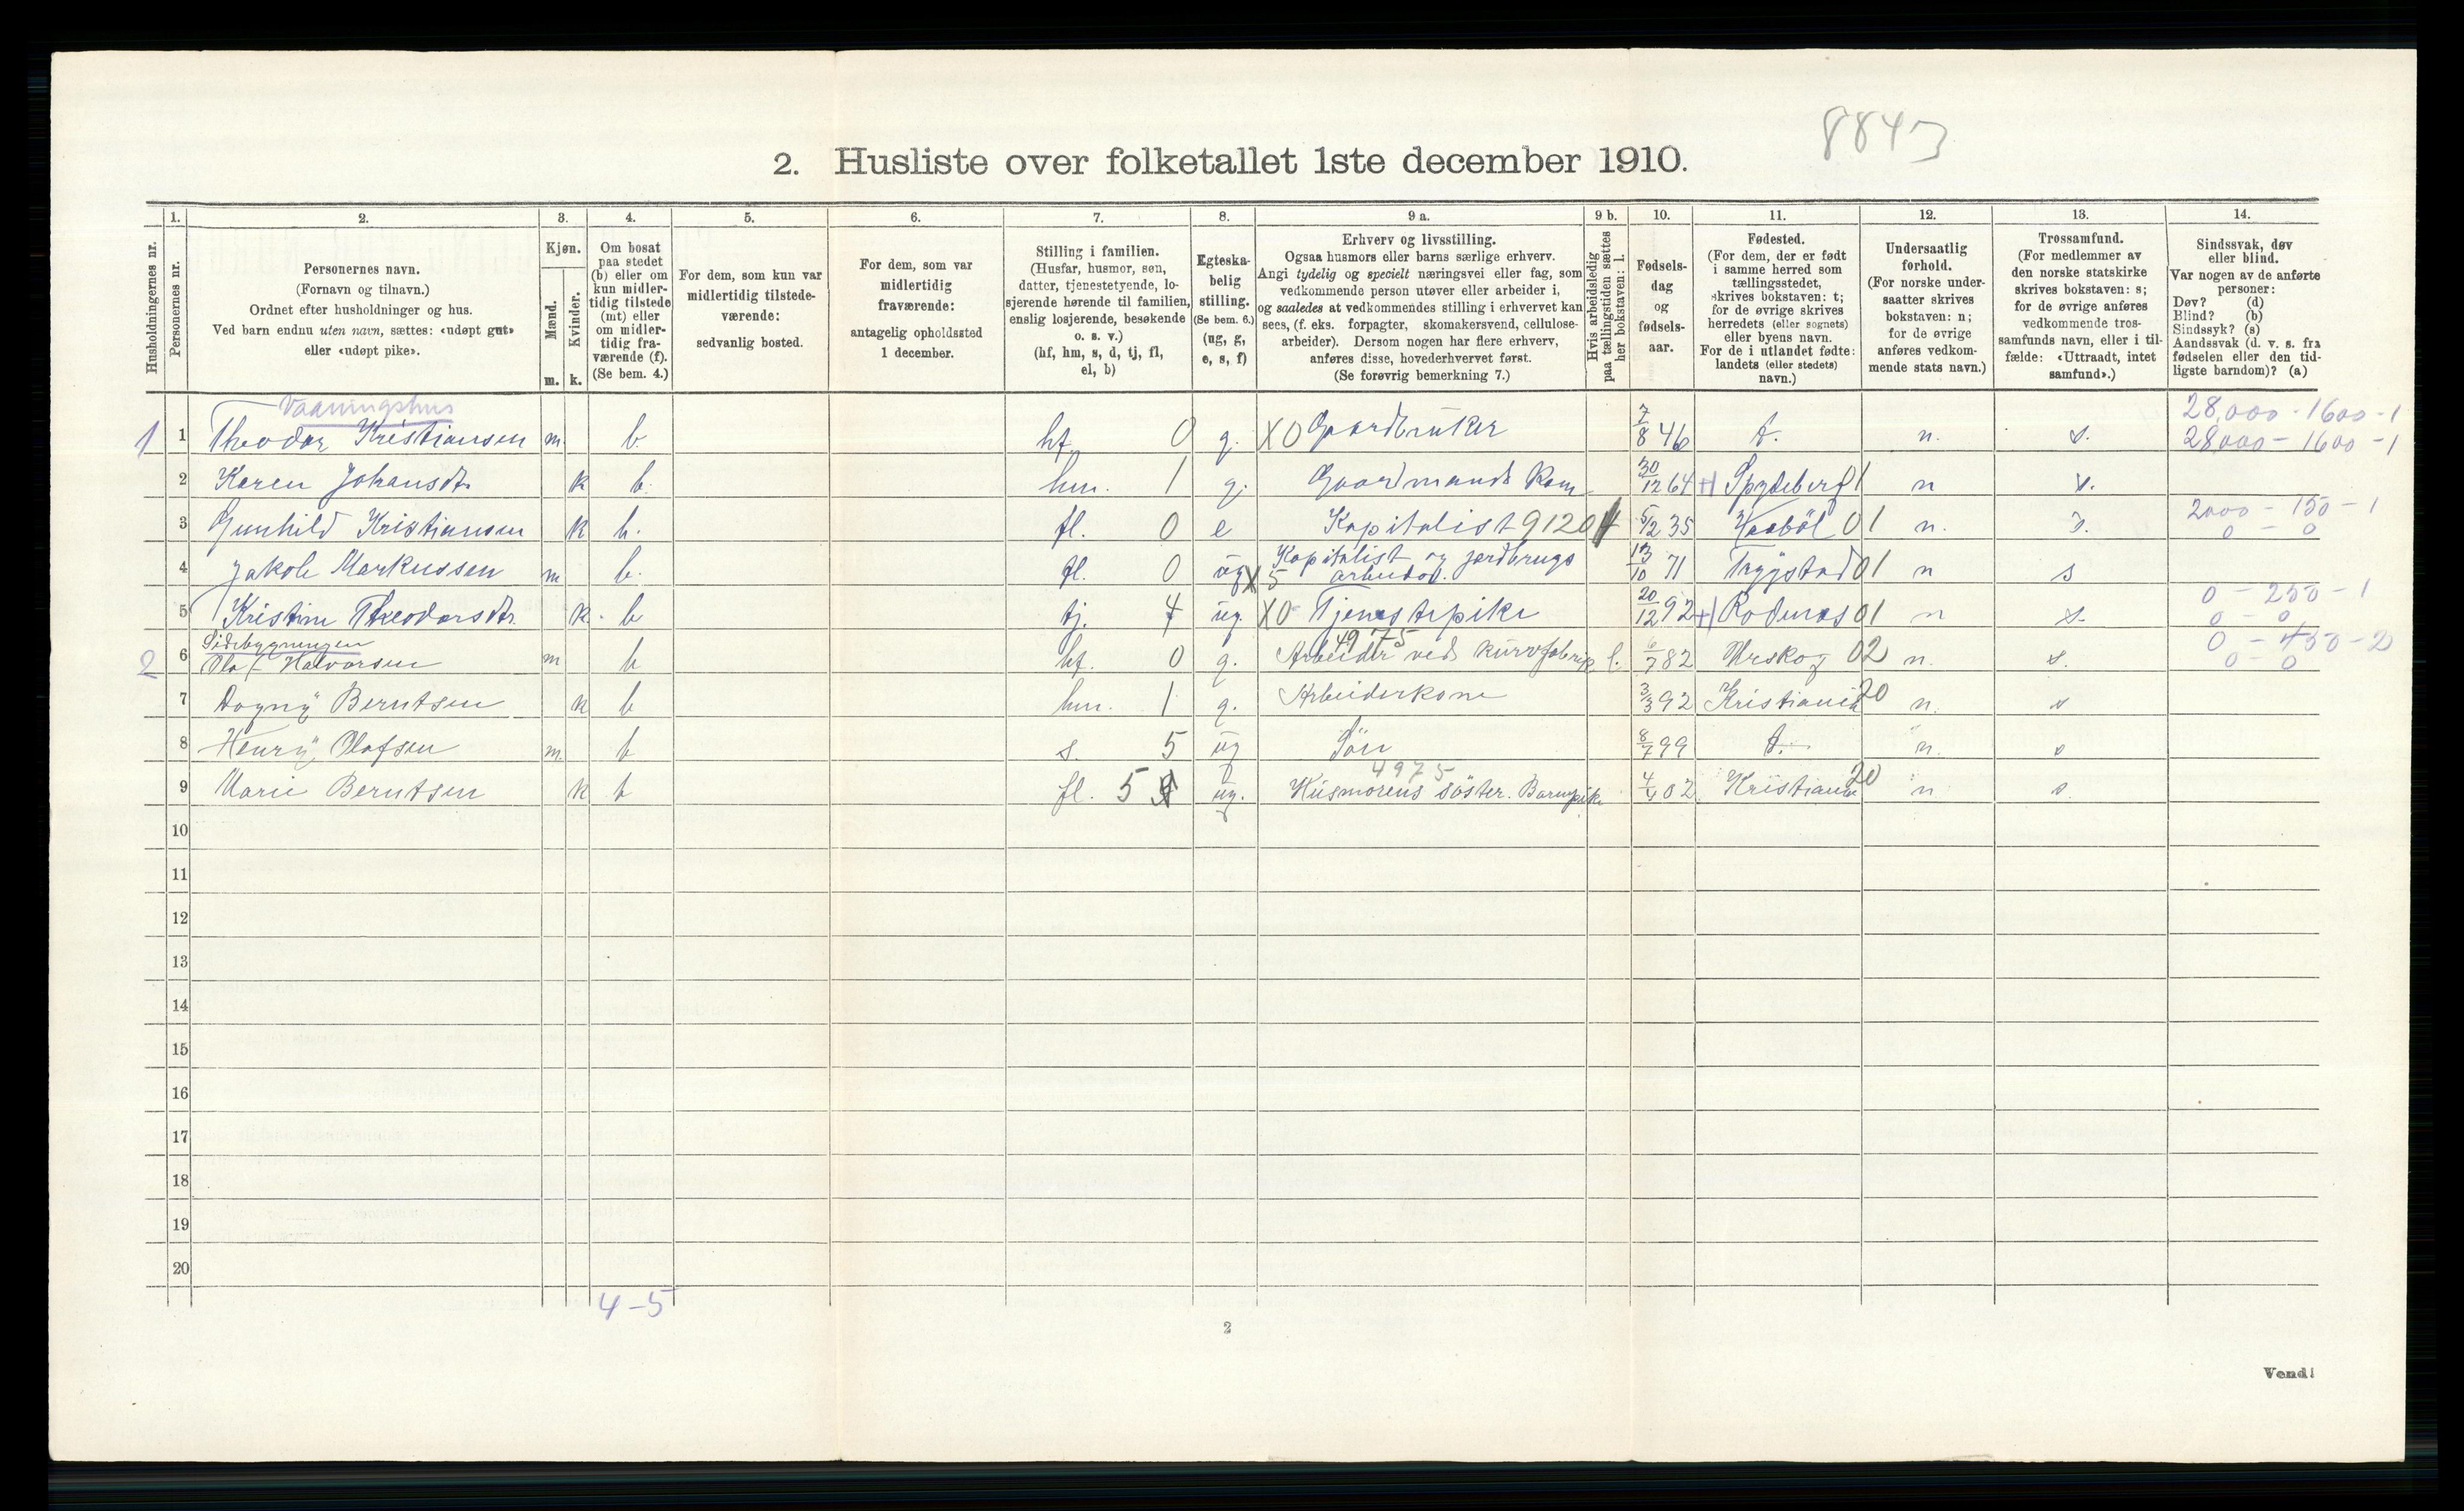 8843
2. Husliste over folketallet 1ste december 1910.
Husholdningernes nr.
1.
Personernes nr.
2.
Personernes navn.
(Fornavn og tilnavn.)
Ordnet efter husholdninger og hus.
Ved barn endnu uten navn, sættes: «udøpt gut»
eller «udøpt pike».
3.
Kjøn.
Mænd.
Kvinder.
m. k.
4.
Om bosat
paa stedet
(b) eller om
kun midler-
tidig tilstede
(mt) eller
om midler-
tidig fra-
værende (f).
(Se bem. 4.)
5.
For dem, som kun var
midlertidig tilstede-
værende:
sedvanlig bosted.
6.
For dem, som var
midlertidig
fraværende:
antagelig opholdssted
1 december.
7.
Stilling i familien.
(Husfar, husmor, søn,
datter, tjenestetyende, lo-
sjerende hørende til familien,
enslig losjerende, besøkende
o. s. v.)
(hf, hm, s, d, tj, fl,
el, b)
8.
Egteska-
belig
stilling.
(Se bem. 6.)
(ug, g,
e, s, f)
9 a.
Erhverv og livsstilling.
Ogsaa husmors eller barns særlige erhverv.
Angi tydelig og specielt næringsvei eller fag, som
vedkommende person utøver eller arbeider i,
og saaledes at vedkommendes stilling i erhvervet kan
sees, (f. eks. forpagter, skomakersvend, cellulose-
arbeider). Dersom nogen har flere erhverv,
anføres disse, hovederhvervet først.
(Se forøvrig bemerkning 7.)
9 b.
Hvis arbeidsledig
paa tællingstiden sættes
her bokstaven: l.
10.
Fødsels-
dag
og
fødsels-
aar.
11.
Fødested.
(For dem, der er født
i samme herred som
tællingsstedet,
skrives bokstaven: t;
for de øvrige skrives
herredets (eller sognets)
eller byens navn.
For de i utlandet fødte:
landets (eller stedets)
navn.)
12.
Undersaatlig
forhold.
(For norske under-
saatter skrives
bokstaven: n;
for de øvrige
anføres vedkom-
mende stats navn.)
13.
Trossamfund.
(For medlemmer av
den norske statskirke
skrives bokstaven: s;
for de øvrige anføres
vedkommende tros-
samfunds navn, eller i til-
fælde: «Uttraadt, intet
samfund».)
14.
Sindssvak, døv
eller blind.
Var nogen av de anførte
personer:
Døv? (d)
Blind? (b)
Sindssyk? (s)
Aandssvak (d. v. s. fra
fødselen eller den tid-
ligste barndom)? (a)
Vaaningshus 28,000 - 1600 - 1
1 1 Theodor Kristiansen m. b. hf. 0 g. X0 Gaardbruker 7/8 46 t. n. s. 28,000 - 1600 - 1
2 Karen Johansdtr. k b. hm. 1 g. Gaardmands Kone 30/12 64 + Spydeberg 1 n s.
3 Gunhild Kristiansen k b. fl. 0 e Kapitalist 9120 5/12 35 Haabøl 01 n. s. 2000 - 150 - 1
0 - 0
4 Jakob Markussen m b. fl. 0 ug X5 Kapitalist og jordbrugs
arbeider. 13/10 71 Trygstad 01 n s
5 Kristine Theodorsdtr. k. b tj. 4 ug. X0 Tjenestepike 20/12 92 + Rødenes 01 n s. 0 - 250 - 1
0 - 0
Sidebygningen
2 6 Olaf Halvorsen m b hf. 0 g. Arbeider ved kurvfabrik 4975 l. 6/7 82 Urskog 02 n. s. 0 - 450 - 2
0 - 0
7 Dagny Berntsen k b hm. 1 g. Arbeiderkone 3/3 92 Kristiania 20 n. s
8 Henry Olafsen m. b s. 5 ug Søn 8/7 99 t. n. s
9 Marie Berntsen k b fl. 5 ug. 4975 Husmorens søster. Barnepike 4/4 02 Kristiania 20 n s.
10
11
12
13
14
15
16
17
18
19
20
4-5
2
Vend!